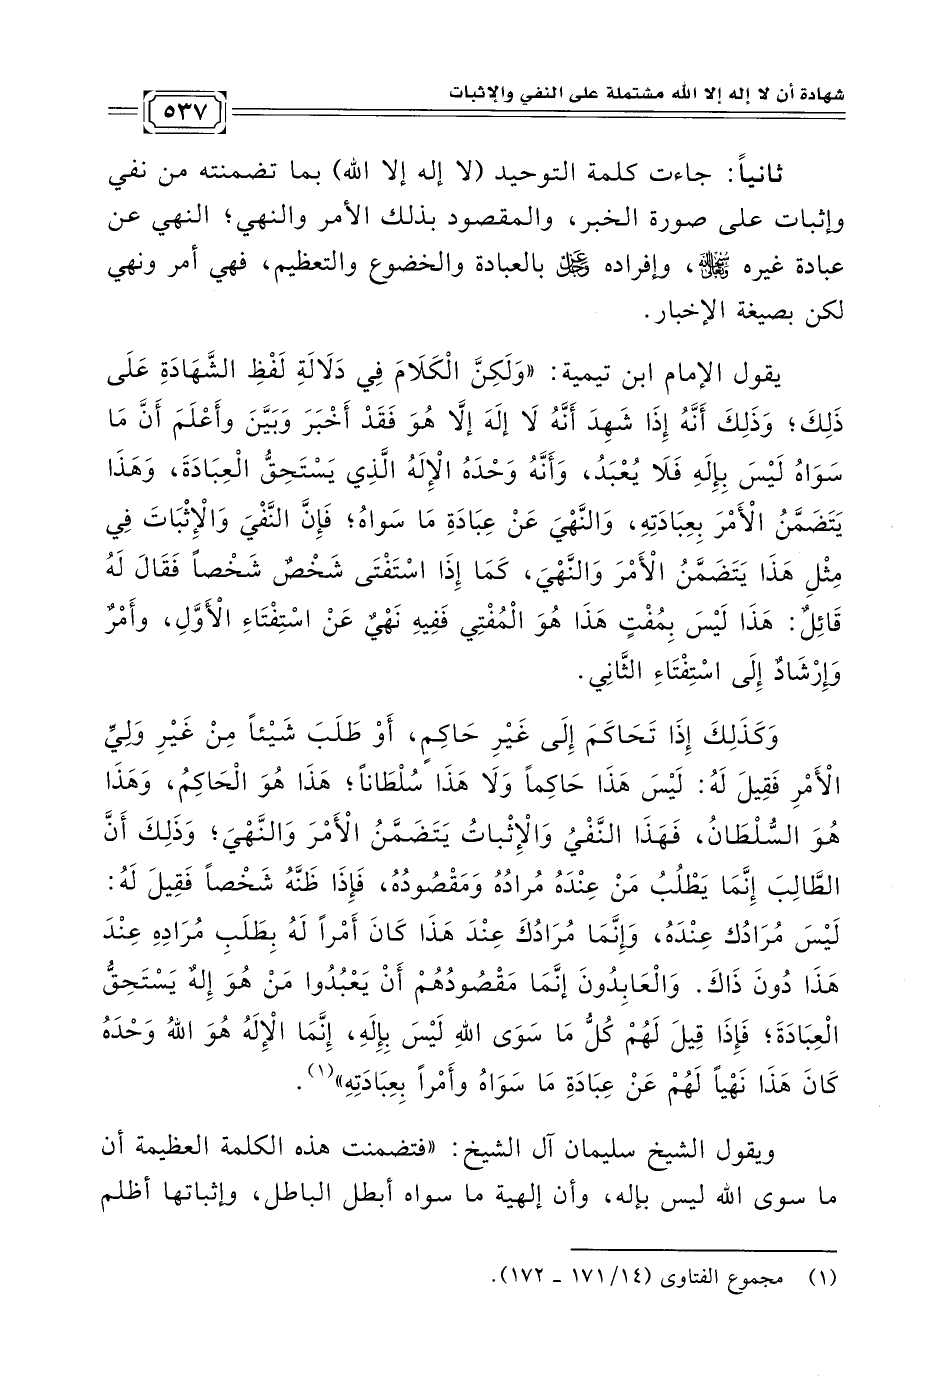 شهادة أن لا إله إلا الله مشتملة على النفي والإثبات
٥٣٧
ثانياً: جاءت كلمة التوحيد (لا إله إلا الله) بما تضمنته من نفي
وإثبات على صورة الخبر، والمقصود بذلك الأمر والنهي؛ النهي عن
عبادة غيره ﷾، وإفراده ﷿ بالعبادة والخضوع والتعظيم، فهي أمر ونهي
لكن بصيغة الإخبار.
يقول الإمام ابن تيمية: «وَلَكِنَّ الْكَلَامَ فِي دَلَالَةِ لَفْظِ الشَّهَادَةِ عَلَى
ذَلِكَ؛ وَذَلِكَ أَنَّهُ إِذَا شَهِدَ أَنَّهُ لَا إِلَهَ إِلَّا هُوَ فَقَدْ أَخْبَرَ وَبَيَّنَ وأَعْلَمَ أَنَّ مَا
سَوَاهُ لَيْسَ بِإِلَهٍ فَلَا يُعْبَدُ، وَأَنَّهُ وَحْدَهُ الْإِلَهُ الَّذِي يَسْتَحِقُّ الْعِبَادَةَ، وَهَذَا
يَتَضَمَّنُ الْأَمْرَ بِعِبَادَتِهِ، وَالنَّهْيَ عَنْ عِبَادَةِ مَا سَوَاهُ؛ فَإِنَّ النَّفْيَ وَالْإِثْبَاتَ فِي
مِثْلِ هَذَا يَتَضَمَّنُ الْأَمْرَ وَالنَّهْيَ، كَمَا إِذَا اسْتَفْتَى شَخْصٌ شَخْصاً فَقَالَ لَهُ
قَائِلٌ: هَذَا لَيْسَ بِمُفْتٍ هَذَا هُوَ الْمُفْتِي فَفِيهِ نَهْيٌ عَنْ اسْتِفْتَاءِ الْأَوَّلِ، وأَمْرٌ
وَإِرْشَادٌ إِلَى اسْتِفْتَاءِ الثَّانِي.
وَكَذَلِكَ إِذَا تَحَاكَمَ إِلَى غَيْرِ حَاكِمٍ، أَوْ طَلَبَ شَيْئاً مِنْ غَيْرِ وَلِيِّ
الْأَمْرِ فَقِيلَ لَهُ: لَيْسَ هَذَا حَاكِماً وَلَا هَذَا سُلْطَاناً؛ هَذَا هُوَ الْحَاكِمُ، وَهَذَا
هُوَ السُّلْطَانُ، فَهَذَا النَّفْيُ وَالْإِثْبَاتُ يَتَضَمَّنُ الْأَمْرَ وَالنَّهْيَ؛ وَذَلِكَ أَنَّ
الطَّالِبَ إِنَّمَا يَطْلُبُ مَنْ عِنْدَهُ مُرَادُهُ وَمَقْصُودُهُ، فَإِذَا ظَنَّهُ شَخْصاً فَقِيلَ لَهُ:
لَيْسَ مُرَادُك عِنْدَهُ، وَإِنَّمَا مُرَادُكَ عِنْدَ هَذَا كَانَ أَمْراً لَهُ بِطَلَبِ مُرَادِهِ عِنْدَ
هَذَا دُونَ ذَاكَ. وَالْعَابِدُونَ إِنَّمَا مَقْصُودُهُمْ أَنْ يَعْبُدُوا مَنْ هُوَ إِلهٌ يَسْتَحِقُّ
الْعِبَادَةَ؛ فَإِذَا قِيلَ لَهُمْ كُلُّ مَا سَوَى اللهِ لَيْسَ بِإِلَهٍ، إِنَّمَا الْإِلَهُ هُوَ اللهُ وَحْدَهُ
كَانَ هَذَا نَهْياً لَهُمْ عَنْ عِبَادَةِ مَا سَوَاهُ وأَمْراً بِعِبَادَتِهِ»(١).
ويقول الشيخ سليمان آل الشيخ: «فتضمنت هذه الكلمة العظيمة أن
ما سوى الله ليس بإله، وأن إلهية ما سواه أبطل الباطل، وإثباتها أظلم
(١) مجموع الفتاوى (١٤/ ١٧١ ـ ١٧٢).